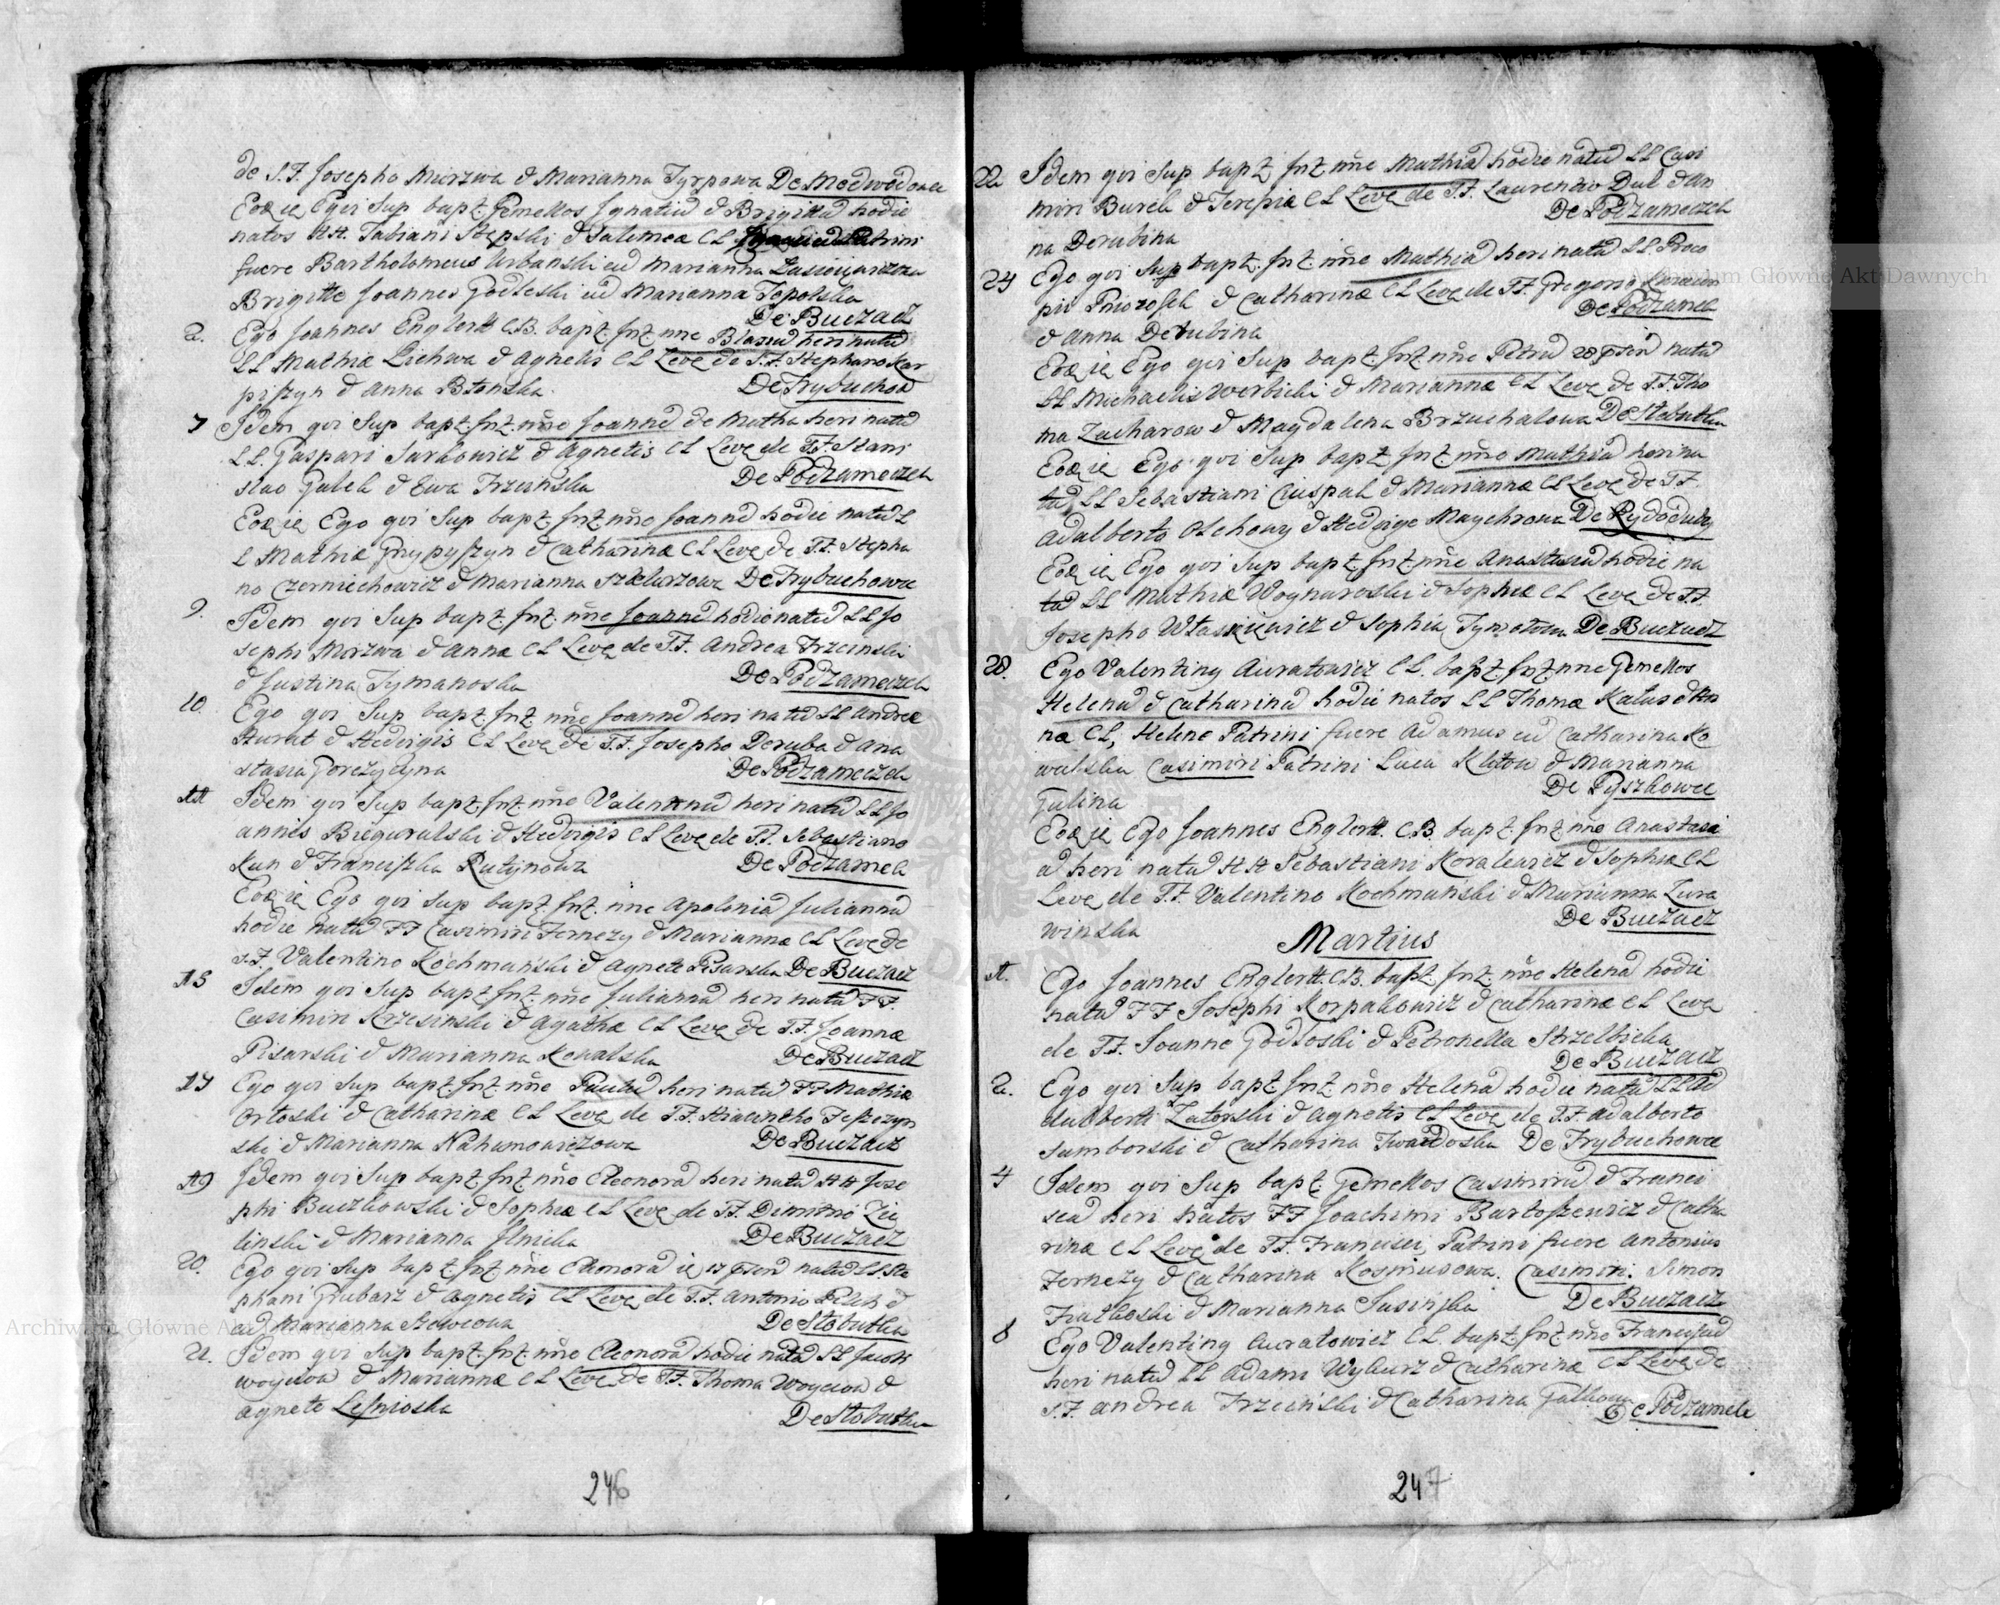 de S.F. Josepho Mirzwa & Marianna Tyrpowa De Medwedowce
Eod ie Ego qvi Sup bapt. Gemellos Ignatiū & Brigittā hodie
natos HH. Fabiani Stepski & Salomeæ CL Patrini
fuere Bartholomeus Urbanski cū Marianna
Brigittæ Joannes Godleski cū Marianna Topolska
De Buczacz
2. Ego Joannes Englertt C.B. bapt. Inft. nñe Blasiū heri natū
LL Mathiæ Lichwa & Agnetis CL Leve de S.F. Stephano Kar
piszyn & Anna Btonska. De Trybuchow
7 Idem qvi Sup bapt. Inft. nñe Joannē de Matha heri natū
LL. Gaspari Jarkowicz & Agnetis CL Leve de S.F. Stani
slao Gulek & Ewa Trzcinska De Podzameczek
Eod ie Ego qvi Sup bapt. Inft nñe Joannē hodie natū L
L Mathiæ Grypyszyn & Catharinæ CL Leve de S.F. Stepha
no Czerniechowicz & Marianna Szklarzowa De Trybuchowce
9. Idem qvi Sup bapt. Inft nñe Joannē hodie natū LL Jo
sephi Morzwa & Annæ CL Leve de S.F. Andrea Trzcinski
& Justina Tymanoska De Podzameczek
10. Ego qvi Sup bapt. Inft nñe Joannē heri natū LL Andreæ
Hurat & Hedvigis CL Leve de S.F. Josepho Deruba & Ana
stasia Gorczycyna De Podzameczek
11 Idem qvi Sup bapt. Inft. nñe Valentinū heri natū LL Jo
annis Biguralski & Hedvigis CL Leve de S.F. Sebastiano
Kun & Franciszka Rutynowa De Podzamek
Eod ie Ego qvi Sup bapt. Inft. nñe Apoloniā Juliannā
hodie natā FF Casimiri Fernezy & Mariannæ CL Leve de
S.F. Valentino Kochmański & Agnete Pisarska De Buczacz
13 Idem qvi Sup bapt Inft. nñe Juliannā heri natā FF.
Casimiri Krzesinski & Agathæ CL Leve de S.F. Joannæ
Pisarski & Marianna Kowalska De Buczacz
17 Ego qvi Sup bapt. Inft nñe Paulū heri natū FF Mathiæ
Orloski & Catharinæ CL Leve de S.F. Hiacintho
ski & Marianna Nahunowiczowa De Buczacz
19 Idem qvi Sup bapt. Inft nñe Eleonorā heri natā HH Jose
phi Buczkowski & Sophiæ CL Leve de S.F. Demitrio Zie
linski & Marianna Ilnicka De Buczacz
20. Ego qvi Sup bapt. Inft nñe Eleonorā ie 17 psen natā LL. Ste
phani Grubarz & Agnetis CL Leve de S.F. Antonio Pilch &
cū Marianna De Stobutka
21. Idem qvi Sup bapt. Inft. nñe Eleonorā hodie natā LL Jacobi
Woyciow & Mariannæ CL Leve de S.F. Thoma Woyciow &
Agnete Lesnioska De Stobutka
246
22. Idem qvi Sup bapt. Inft nñe Mathiā hodie natū LL Casi
miri Burek & Teresiæ CL Leve de S.F. Laurentio Dul & An
na Derubina De Podzameczek
24 Ego qvi Sup bapt. Inft. nñe Mathiā heri natū LL Proco
pii & Catharinæ CL Leve de S.F. Gregorio
& Anna Derubina De Podzamek
Eod ie Ego qvi Sup bapt. Inft nñe Petrū 20 psen natū
LL Michaelis Werbicki & Mariannæ CL Leve de S.F. Tho
ma Zacharow & Magdalena Brzuchalowa De Stobutka
Eod ie Ego qvi Sup bapt. Inft nñe Mathiā heri na
tū LL Sebastiani Cuspak & Mariannæ CL Leve de S.F.
Adalberto Olchowy & Hedvige Maychrowa De Rydoduby
Eod ie Ego qvi Sup bapt Inft nñe Anastasiā hodie na
tā LL Mathiæ Woynaroski & Sophiæ CL Leve de S.F.
Josepho Wlaskiewicz & Sophia Tymotowa De Buczacz
28. Ego Valentinq Auratowicz CL. bapt Inft nñe Gemellos
Helenā & Catharinā hodie natos LL Thomæ Katus & An
næ CL, Helenæ Patrini fuere Adamus cū Catharina Ko
walska Casimiri Patrini Luca Klitow & Marianna
Gulina De Pyszkowce
Eod ie Ego Joannes Englertt C.B. bapt Inft nñe Anastasi
ā heri natā HH Sebastiani Kovalewicz & Sophiæ CL
Leve de S.F. Valentino Kochmański & Marianna Zura
winska De Buczacz
Martius
1. Ego Joannes Englertt C.B. bapt. Inft. nñe Helenā hodie
natā FF Josephi Korpakowicz & Catharinæ CL Leve
de S.F. Joanne Godloski & Petronella Strzelbicka
De Buczacz
2. Ego qvi Sup bapt Inft nñe Helenā hodie natā LL Ad
alberti Zatorski & Agnetis CL Leve de S.F Adalberto
Samborski & Catharina Twardoska De Trybuchowce
4 Idem qvi Sup bapt Gemellos Casimirū & Franci
scā heri natos FF Joachimi Bartoszewicz & Catha
rinæ CL Leve de S.F. Francisci, Patrini fuere Antonius
Fernezy & Catharina Kosmusowa. Casimiri. Simon
Fratkoski & Marianna Susinska De Buczacz
8 Ego Valentinq Auratowicz CL. bapt. Inft nñe Franciscū
heri natū LL Adami Wyburz & Catharinæ CL Leve de
S.F. Andrea Trzcinski & Catharina De Podzamek
247
Archiwum Główne Akt Dawnych
Archiwum Główne Akt Dawnych